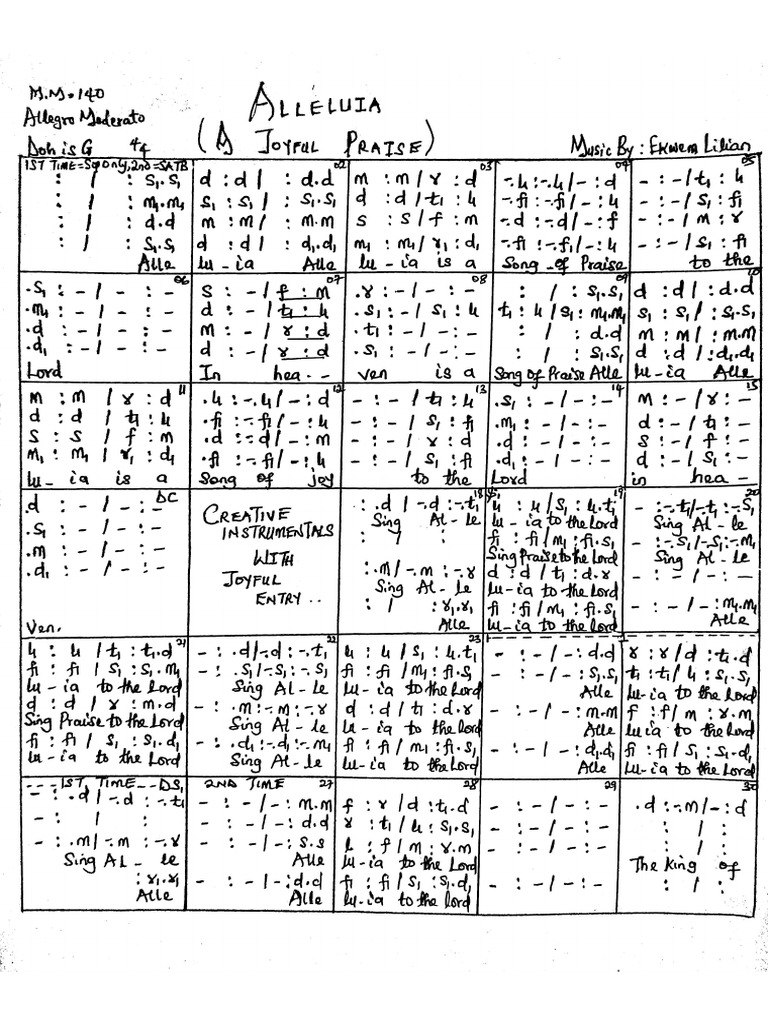 M.M=140
ALLELUIA
Allegro Moderato
(A JOYFUL PRAISE)
Doh is G 4/4
Music By: EKWEM Lilian
1ST TIME=Sop only, 2nd=SATB 02 03 04 05
: / : s₁.s₁ | d : d / : d.d | m : m / r : d | -.l₁ :-.l₁ / - : d | - : - / t₁ : l₁
: / : m₁.m₁ | s₁ : s₁ / : s₁.s₁ | d : d / t₁ : l₁ | -.fi : -.fi / - : l₁ | - : - / s₁ : fi
: / : d.d | m : m / : m.m | s : s / f : m | -.d :-.d / - : f | - : - / m : r
: / : s₁.s₁ | d : d / : d₁.d₁ | m₁ : m₁ / r₁ : d₁ | -.fi :-.fi / - : l₁ | - : - / s₁ : fi
Alle | lu-ia Alle | lu-ia is a | Song of Praise | to the
06 07 08 09 10
.s₁ : - / - : - | s : - / f : m | .r : - / - : - | : / : s₁.s₁ | d : d / : d.d
.m₁ : - / - : - | d : - / t₁ : l₁ | .s₁ : - / s₁ : l₁ | t₁ : l₁ / s₁ : m₁.m₁ | s₁ : s₁ / : s₁.s₁
.d : - / - : - | m : - / r : d | .t₁ : - / - : - | : / : d.d | m : m / : m.m
.d₁ : - / - : - | d : - / r : d | .s₁ : - / - : - | : / : s₁.s₁ | d : d / : d₁.d₁
Lord | In hea-- | ven is a | Song of Praise Alle | lu-ia Alle
11 12 13 14 15
m : m / r : d | .l₁ : -.l₁ / - : d | - : - / t₁ : l₁ | .s₁ : - / - : - | m : - / r : -
d : d / t₁ : l₁ | .fi :-.fi / - : l₁ | - : - / s₁ : fi | .m₁ : - / - : - | d : - / t₁ : -
s : s / f : m | .d :-.d / - : m | - : - / r : d | .d : - / - : - | s : - / f : -
m₁ : m₁ / r₁ : d₁ | .fi :-.fi / - : l₁ | - : - / s₁ : fi | .d₁ : - / - : - | d : - / s₁ : -
lu-ia is a | Song of joy | to the | Lord | in hea-
DC 18 19 20
.d : - / - : -
.s₁ : - / - : -
.m : - / - : -
.d₁ : - / - : -
Ven.
CREATIVE
INSTRUMENTALS
WITH
JOYFUL
ENTRY..
: .d / -.d : -.t₁
Sing Al-le
: / :
: .m / -.m : -.r
Sing Al-le
: / : r₁.r₁
Alle
l₁ : l₁ / s₁ : l₁.t₁
lu-ia to the Lord
fi : fi / m₁ : fi.s₁
Sing Praise to the Lord
d : d / t₁ : d.r
lu-ia to the Lord
fi : fi / m₁ : fi.s₁
lu-ia to the Lord
- : -.t₁ / -.t₁ : -.s₁
Sing Al-le
- : -.s₁ / -.s₁ : -.m₁
Sing Al-le
- : - / - : -
- : - / - : m₁.m₁
Alle
21
l₁ : l₁ / t₁ : t₁.d
fi : fi / s₁ : s₁.m₁
lu-ia to the Lord
d : d / r : m.d
Sing Praise to the Lord
fi : fi / s₁ : s₁.d₁
lu-ia to the Lord
22
- : .d / -.d : -.t₁
- : .s₁ / -.s₁ : -.s₁
Sing Al-le
- : -.m : -.m : -.r
Sing Al-le
- : .d₁ : -.d₁ : -.m₁
Sing Al-le
23
l₁ : l₁ / s₁ : l₁.t₁
fi : fi / m₁ : fi.s₁
lu-ia to the Lord
d : d / t₁ : d.r
lu-ia to the Lord
fi : fi / m₁ : fi.s₁
lu-ia to the Lord
- : - / - : d.d
- : - / - : s₁.s₁
Alle
- : - / - : m.m
Alle
- : - / - : d₁.d₁
Alle
r : r / d : t₁.d
t₁ : t₁ / l₁ : s₁.s₁
lu-ia to the Lord
f : f / m : r.m
lu ia to the Lord
fi : fi / s₁ : s₁.d₁
lu-ia to the Lord
1ST TIME DS
- : .d / -.d : -.t₁
- : / :
- : .m / -.m : -.r
Sing Al-le
: r₁.r₁
Alle
2ND TIME 27
- : - / - : m.m
- : - / - : d.d
- : - / - : s.s
Alle
- : - / - : d.d
Alle
28
f : r / d : t₁.d
r : t₁ / l₁ : s₁.s₁
l : f / m : r.m
lu-ia to the Lord
fi : fi / s₁ : s₁.d₁
lu-ia to the lord
29
- : - / - : -
- : - / - : -
- : - / - : -
- : - / - : -
30
.d : -.m / - : d
: / :
: / :
The King of
: / :